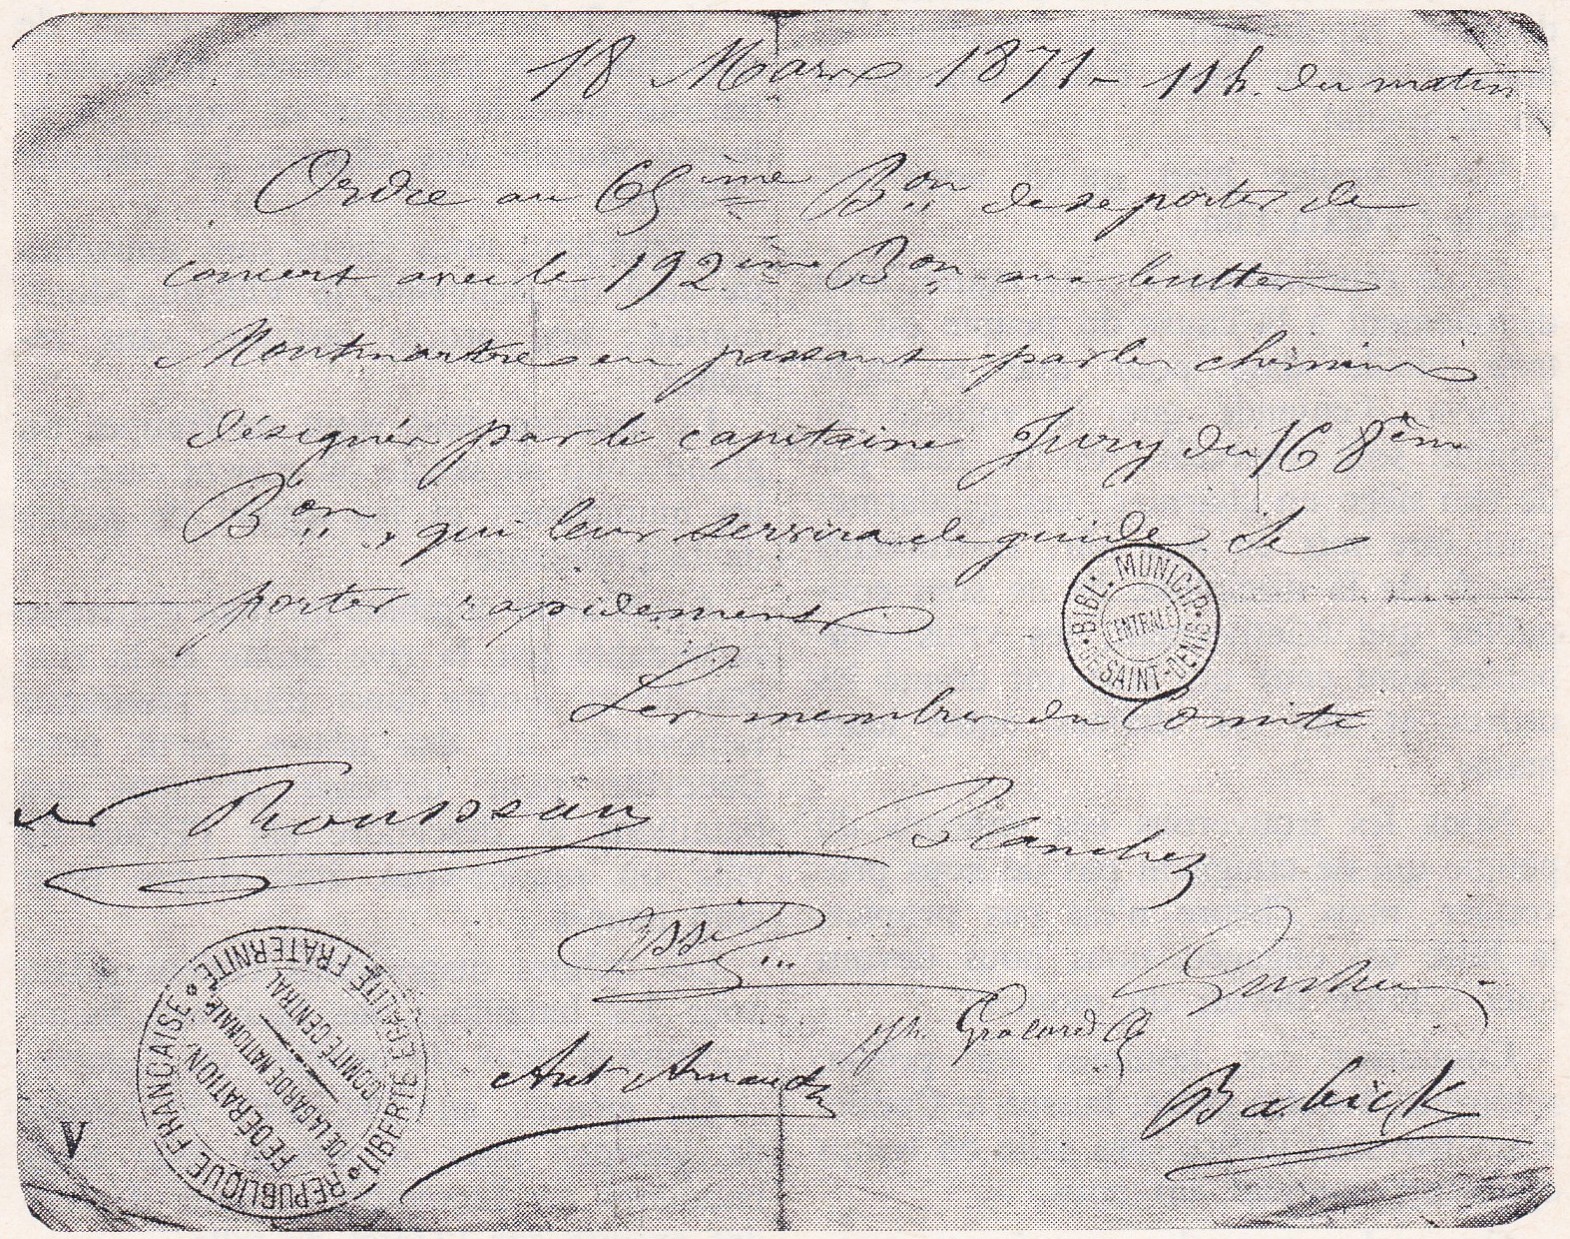 18 Mars 1871 - 11 h. du matin
Ordre au 65ème Bon de se porter de
concert avec le 192ème Bon aux buttes
Montmartre en passant par les chemins
désignés par le capitaine Jury du 168ème
Bon, qui leur servira de guide. Se
porter rapidement
Les membres du Comité
Rousseau
Blanchet
Assi
Ant Arnaud
Babick
BIBL. MUNICIP. DE SAINT-DENIS
CENTRALE
RÉPUBLIQUE FRANÇAISE
LIBERTÉ ÉGALITÉ FRATERNITÉ
FÉDÉRATION
DE LA GARDE NATIONALE
COMITÉ CENTRAL
V